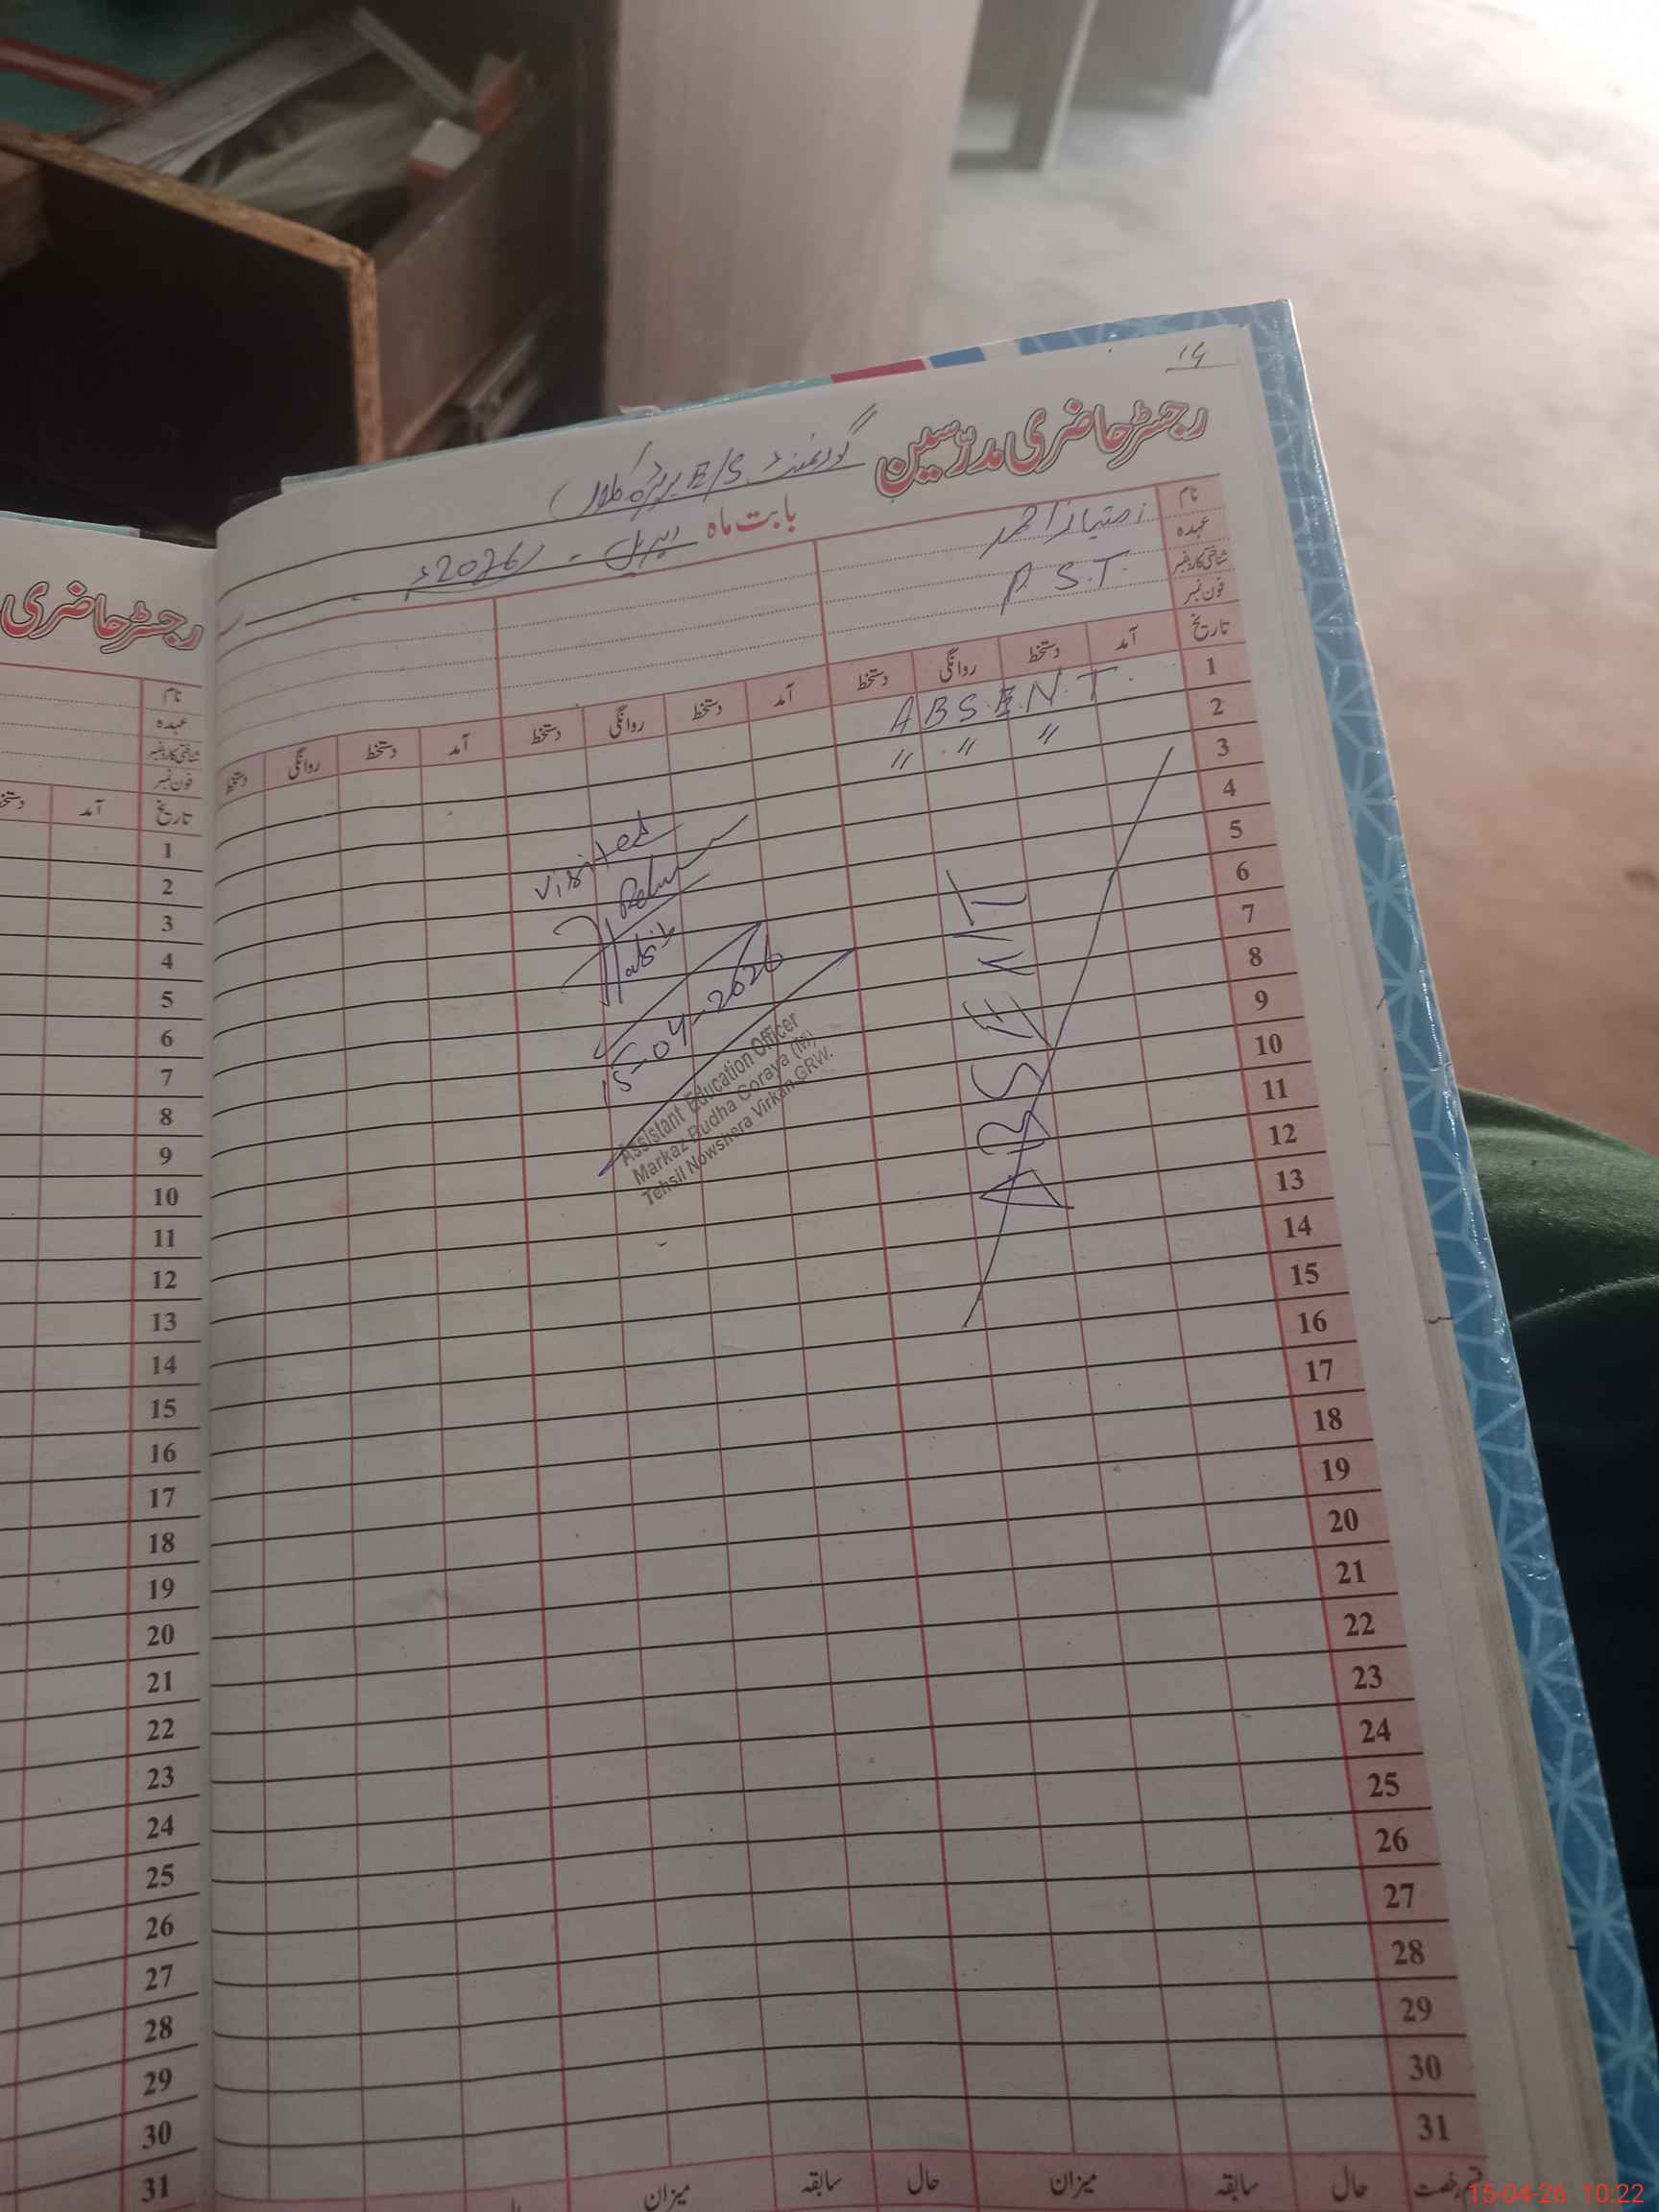 14
رجسٹر حاضری مدرّسین گورنمنٹ E/S
بابت ماہ اپریل - 2026ء
نام امتیاز احمد
عہدہ P.S.T.
شناختی کارڈ نمبر
فون نمبر
تاریخ آمد دستخط روانگی دستخط آمد دستخط روانگی دستخط آمد دستخط روانگی دستخط
1 A B S.E.N.T.
2 〃 〃 〃
3
4
5
6
7
8
9
10
11
12
13
14
15
16
17
18
19
20
21
22
23
24
25
26
27
28
29
30
31
ABSENT
visited
15-04-2026
Assistant Education Officer
Markaz Budha Goraya (M)
Tehsil Nowshera Virkan GRW.
حال سابقہ میزان حال سابقہ میزان
رجسٹر حاضری
نام
عہدہ
شناختی کارڈ نمبر
فون نمبر
تاریخ آمد
1
2
3
4
5
6
7
8
9
10
11
12
13
14
15
16
17
18
19
20
21
22
23
24
25
26
27
28
29
30
31
15-04-26 10:22